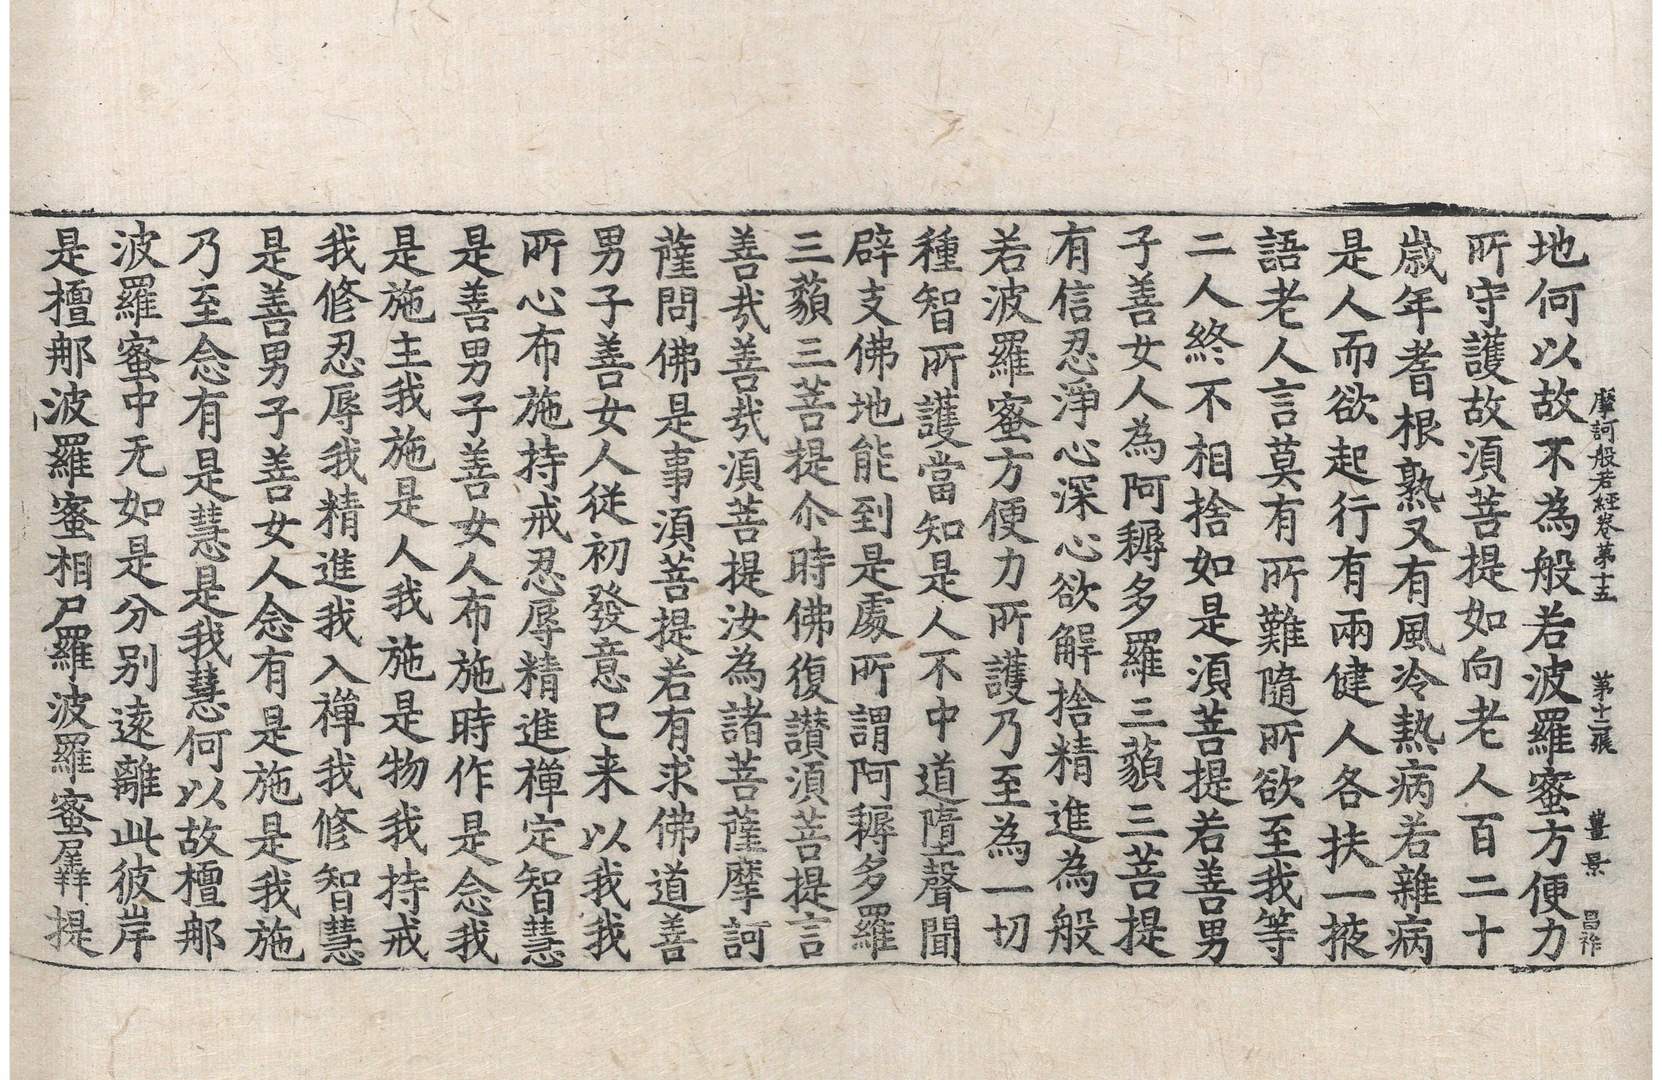 摩訶般若經卷第十五 第十二張 薑 景 昌祚
地何以故不為般若波羅蜜方便力
所守護故須菩提如向老人百二十
歲年耆根熟又有風冷熱病若雜病
是人而欲起行有兩健人各扶一掖
語老人言莫有所難隨所欲至我等
二人終不相捨如是須菩提若善男
子善女人為阿耨多羅三藐三菩提
有信忍淨心深心欲解捨精進為般
若波羅蜜方便力所護乃至為一切
種智所護當知是人不中道墮聲聞
辟支佛地能到是處所謂阿耨多羅
三藐三菩提尒時佛復讃須菩提言
善哉善哉須菩提汝為諸菩薩摩訶
薩問佛是事須菩提若有求佛道善
男子善女人從初發意已来以我我
所心布施持戒忍辱精進禪定智慧
是善男子善女人布施時作是念我
是施主我施是人我施是物我持戒
我修忍辱我精進我入禪我修智慧
是善男子善女人念有是施是我施
乃至念有是慧是我慧何以故檀那
波羅蜜中无如是分別遠離此彼岸
是檀那波羅蜜相尸羅波羅蜜羼提